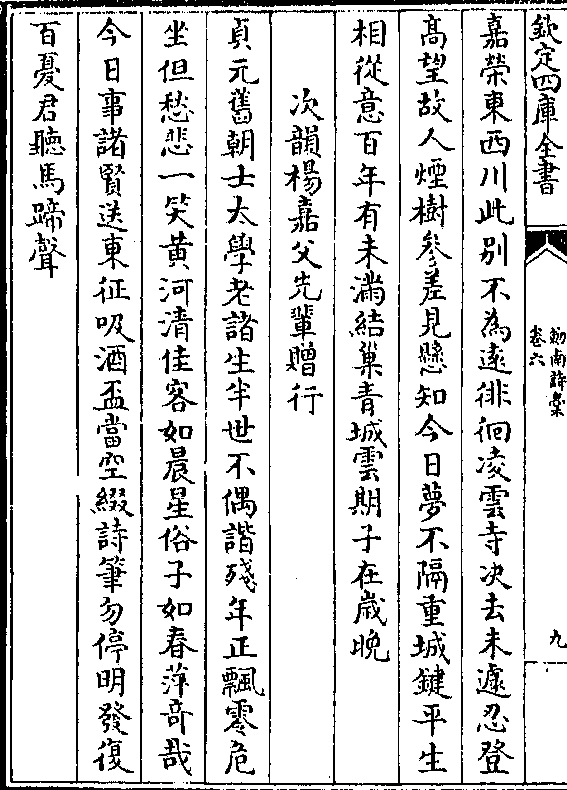 欽定四庫全書
劒南詩藁
卷六
九
嘉榮東西川此别不為遠徘徊凌雲寺決去未遽忍登
髙望故人煙樹參差見懸知今日夢不隔重城鍵平生
相從意百年有未滿結巢青城雲期子在嵗晩
次韻楊嘉父先輩贈行
貞元舊朝士太學老諸生半世不偶諧殘年正飄零危
坐但愁悲一笑黄河清佳客如晨星俗子如春萍竒哉
今日事諸賢送東征吸酒盃當空綴詩筆勿停明發復
百憂君聽馬蹄聲